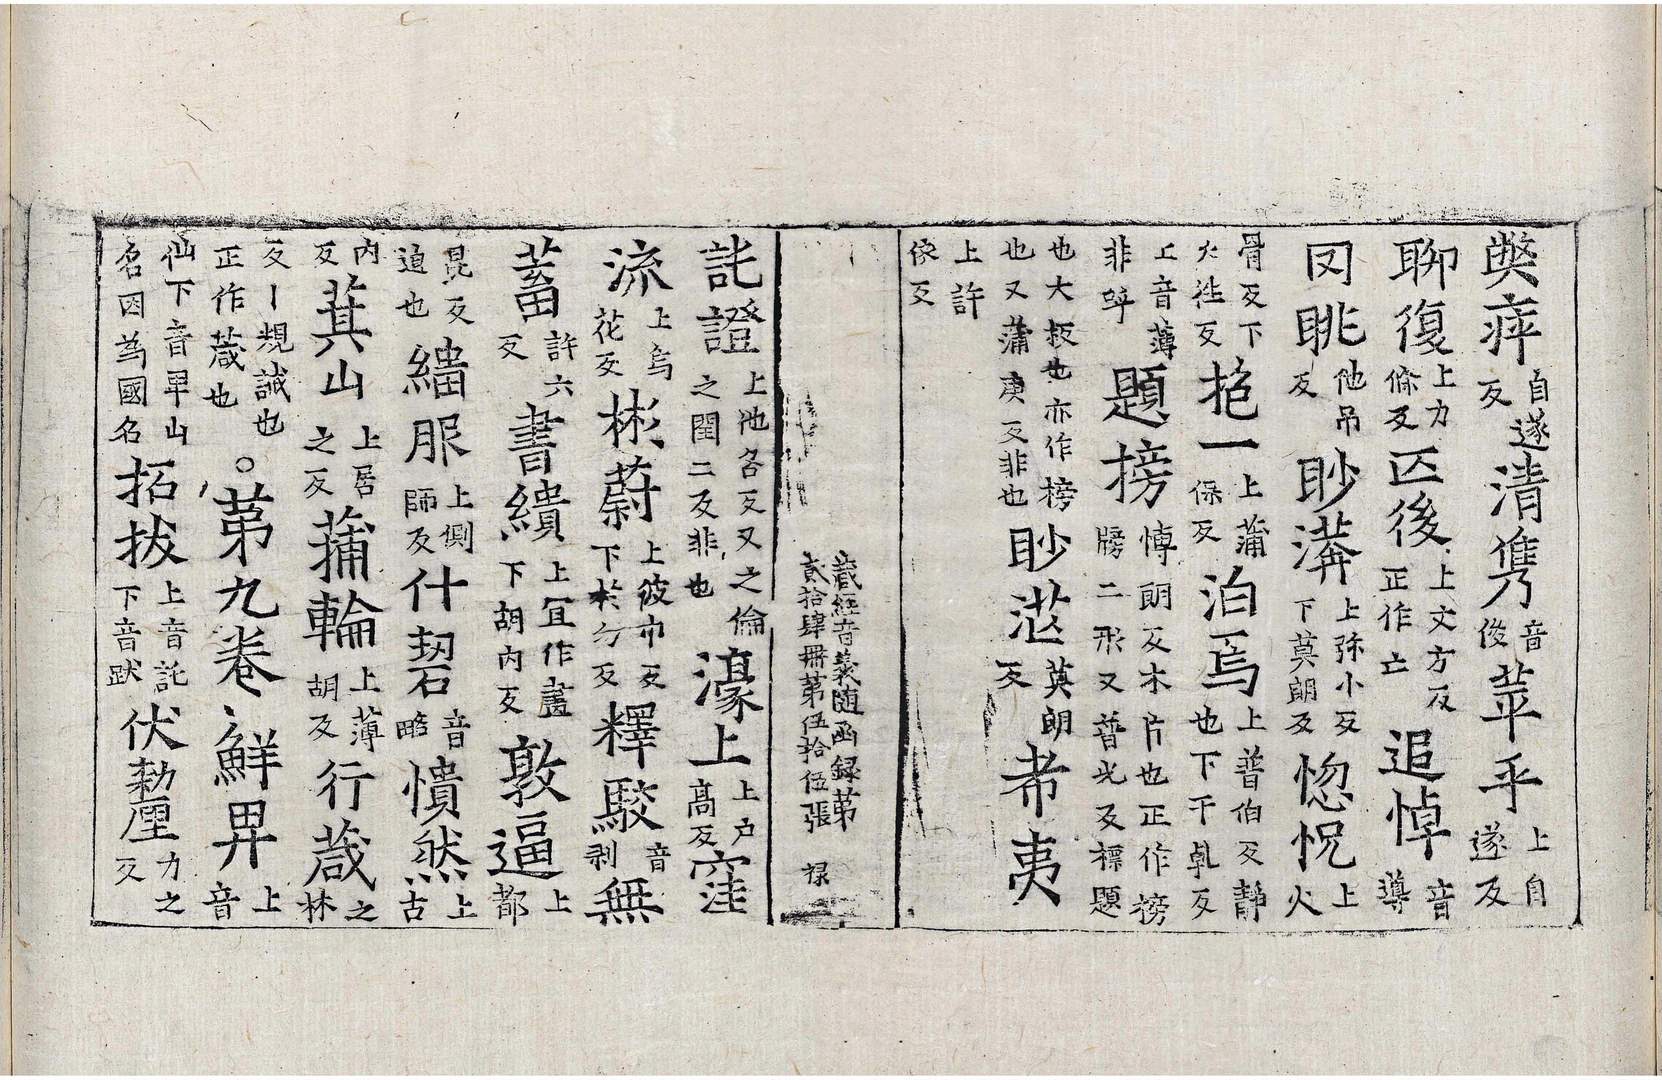 獘瘁自遂反清雋音俊苹乎上自遂反
聊復上力條反𠇾後上文方反正作亡追悼音導
罔眺他吊反眇漭上弥小反下莫朗反惚怳上火
骨反下大往反抱一上蒲保反泊焉上普伯反静也下干乹反
上音薄非呼題榜愽朗反木片也正作榜牓二形又普光反標題
也大板也亦作榜也又蒲庚反非也眇茫莫朗反希夷
上許依反
藏經音義随函録第貳拾肆冊第伍拾伍張 禄
託證上他各反又之倫之閏二反非也濠上上户高反窪
流上烏花反彬蔚上彼巾反下於勿反釋駮音剥無
蓄許六反書繢上冝作畫下胡内反敦逼上都
昆反逼也緇服上側師反什䂮音略憒然上古
内反萁山上居之反蒱輪上薄胡反行葴之林
反丨規誡也正作葴也。第九卷鮮卑上音
仙下音卑山名因為國名拓拔上音託下音跋伏勑厘力之反